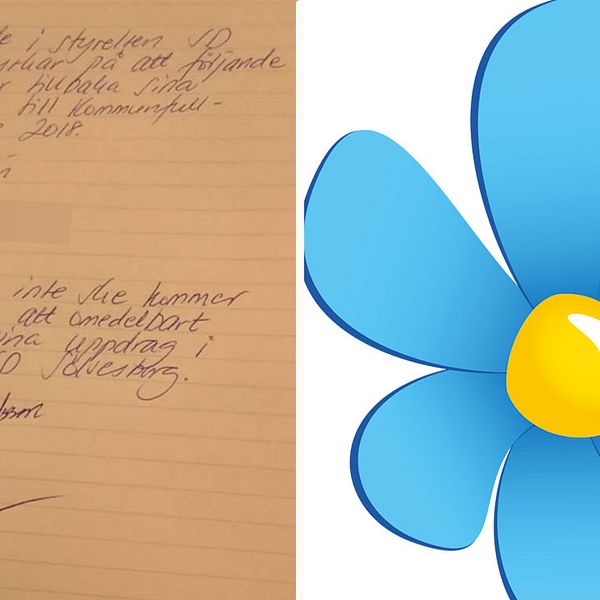 e i styrelsen SD
yrkar på att följande
r tillbaka sina
till Kommunfull-
2018.
inte ske kommer
att omedelbart
ina uppdrag i
D Sölvesborg.